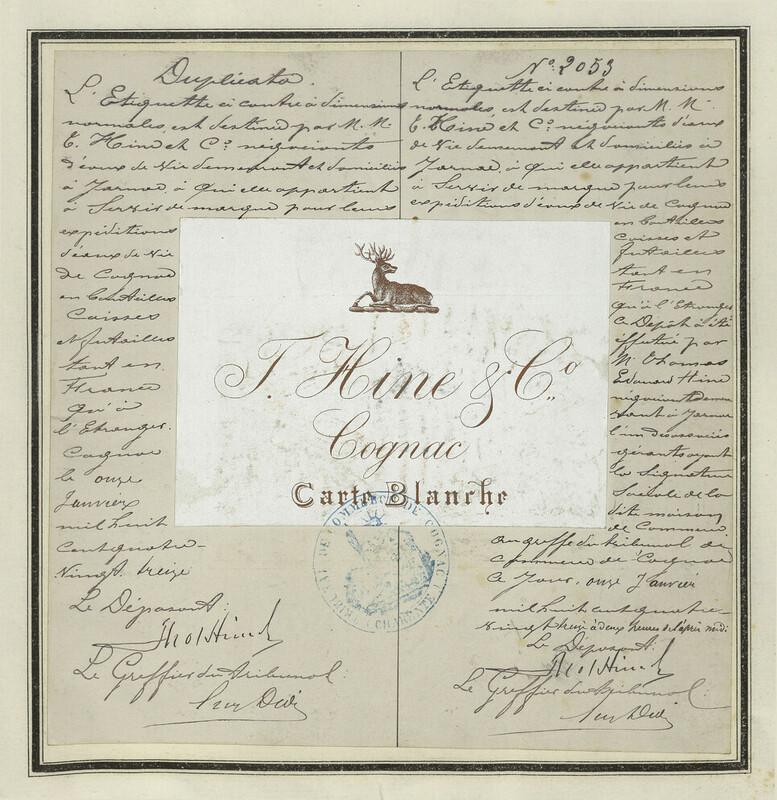 Duplicata.
L'Etiquette ci contre à dimensions
normales, est destinée par M. M.
T. Hine et Cº. négociants
d'eaux de Vie demeurant et domiciliés
à Jarnac, à qui elle appartient
à Servir de marque pour leurs
expéditions
d'eaux de Vie
de Cognac
en Bouteilles
Caisses
et futailles
tant en
France
qu'à
l'Etranger.
Cognac
le onze
Janvier
mil huit
cent quatre-
Vingt treize
Le Déposant:
Le Greffier du tribunal
Nº 2053
L'Etiquette ci contre à dimensions
normales, est destinée par M. M.
T. Hine et Cº. négociants d'eaux
de Vie demeurant et domiciliés à
Jarnac, à qui elle appartient
à Servir de marque pour leurs
expéditions d'eaux de Vie de Cognac
en Bouteilles
Caisses et
futailles
tant en
France
qu'à l'Etranger
Ce Dépôt à été
effectué par
M. Thomas
Edouard Hine
négociant demeu
rant à Jarnac
l'un des associés
gérants ayant
la Signature
Sociale de la
dite maison
de Commerce
au greffe du tribunal de
Commerce de Cognac
Ce Jour, onze Janvier
mil huit cent quatre-
vingt treize à deux heures de l'après midi
Le Déposant:
Le Greffier du tribunal:
T. Hine & Cº.
Cognac
Carte Blanche
TRIBUNAL DE COMMERCE DE COGNAC
(CHARENTE)